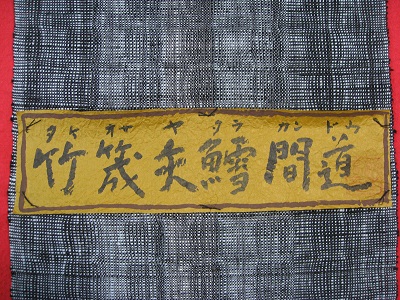 タケ オサ ヤ タラ カン ドウ
竹筬矢鱈間道